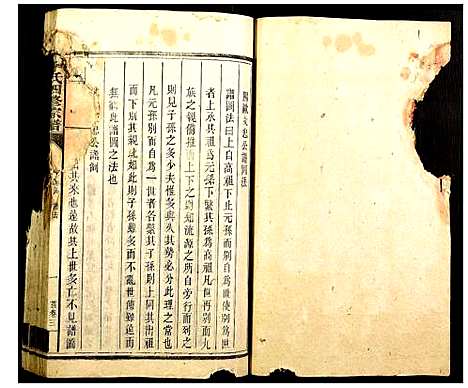 歐陽文忠公譜圖法
譜圖法曰上自高祖下止元孫而別自為世使別為世
者上承其祖為元孫下繫其孫為高祖凡世再別而九
族之親備推而上下之則知源流之所自旁行而列之
則見子孫之多少夫惟多與久其勢必分此理之常也
凡元孫別而自為一世者各繫其子孫則上同其出祖
而下別其親疏如此則子孫雖多而不亂世傳雖遠而
無窮此譜圖之法也
忠公譜例
其來也遠故其上世多亡不見譜圖
氏四修宗譜
譜法
一
首卷三